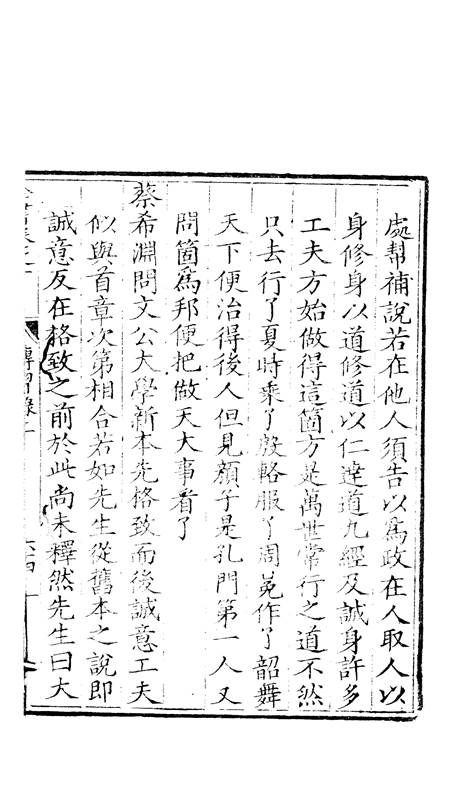 處幫補說若在他人須告以爲政在人取人以
身修身以道修道以仁達道九經及誠身許多
工夫方始做得這箇方是萬世常行之道不然
只去行了夏時乘了殷輅服了周冕作了韶舞
天下便治得後人但見顏子是孔門第一人又
問箇爲邦便把做天大事看了
蔡希淵問文公大學新本先格致而後誠意工夫
似與首章次第相合若如先生從舊本之說即
誠意反在格致之前於此尚未釋然先生曰大
傳習錄